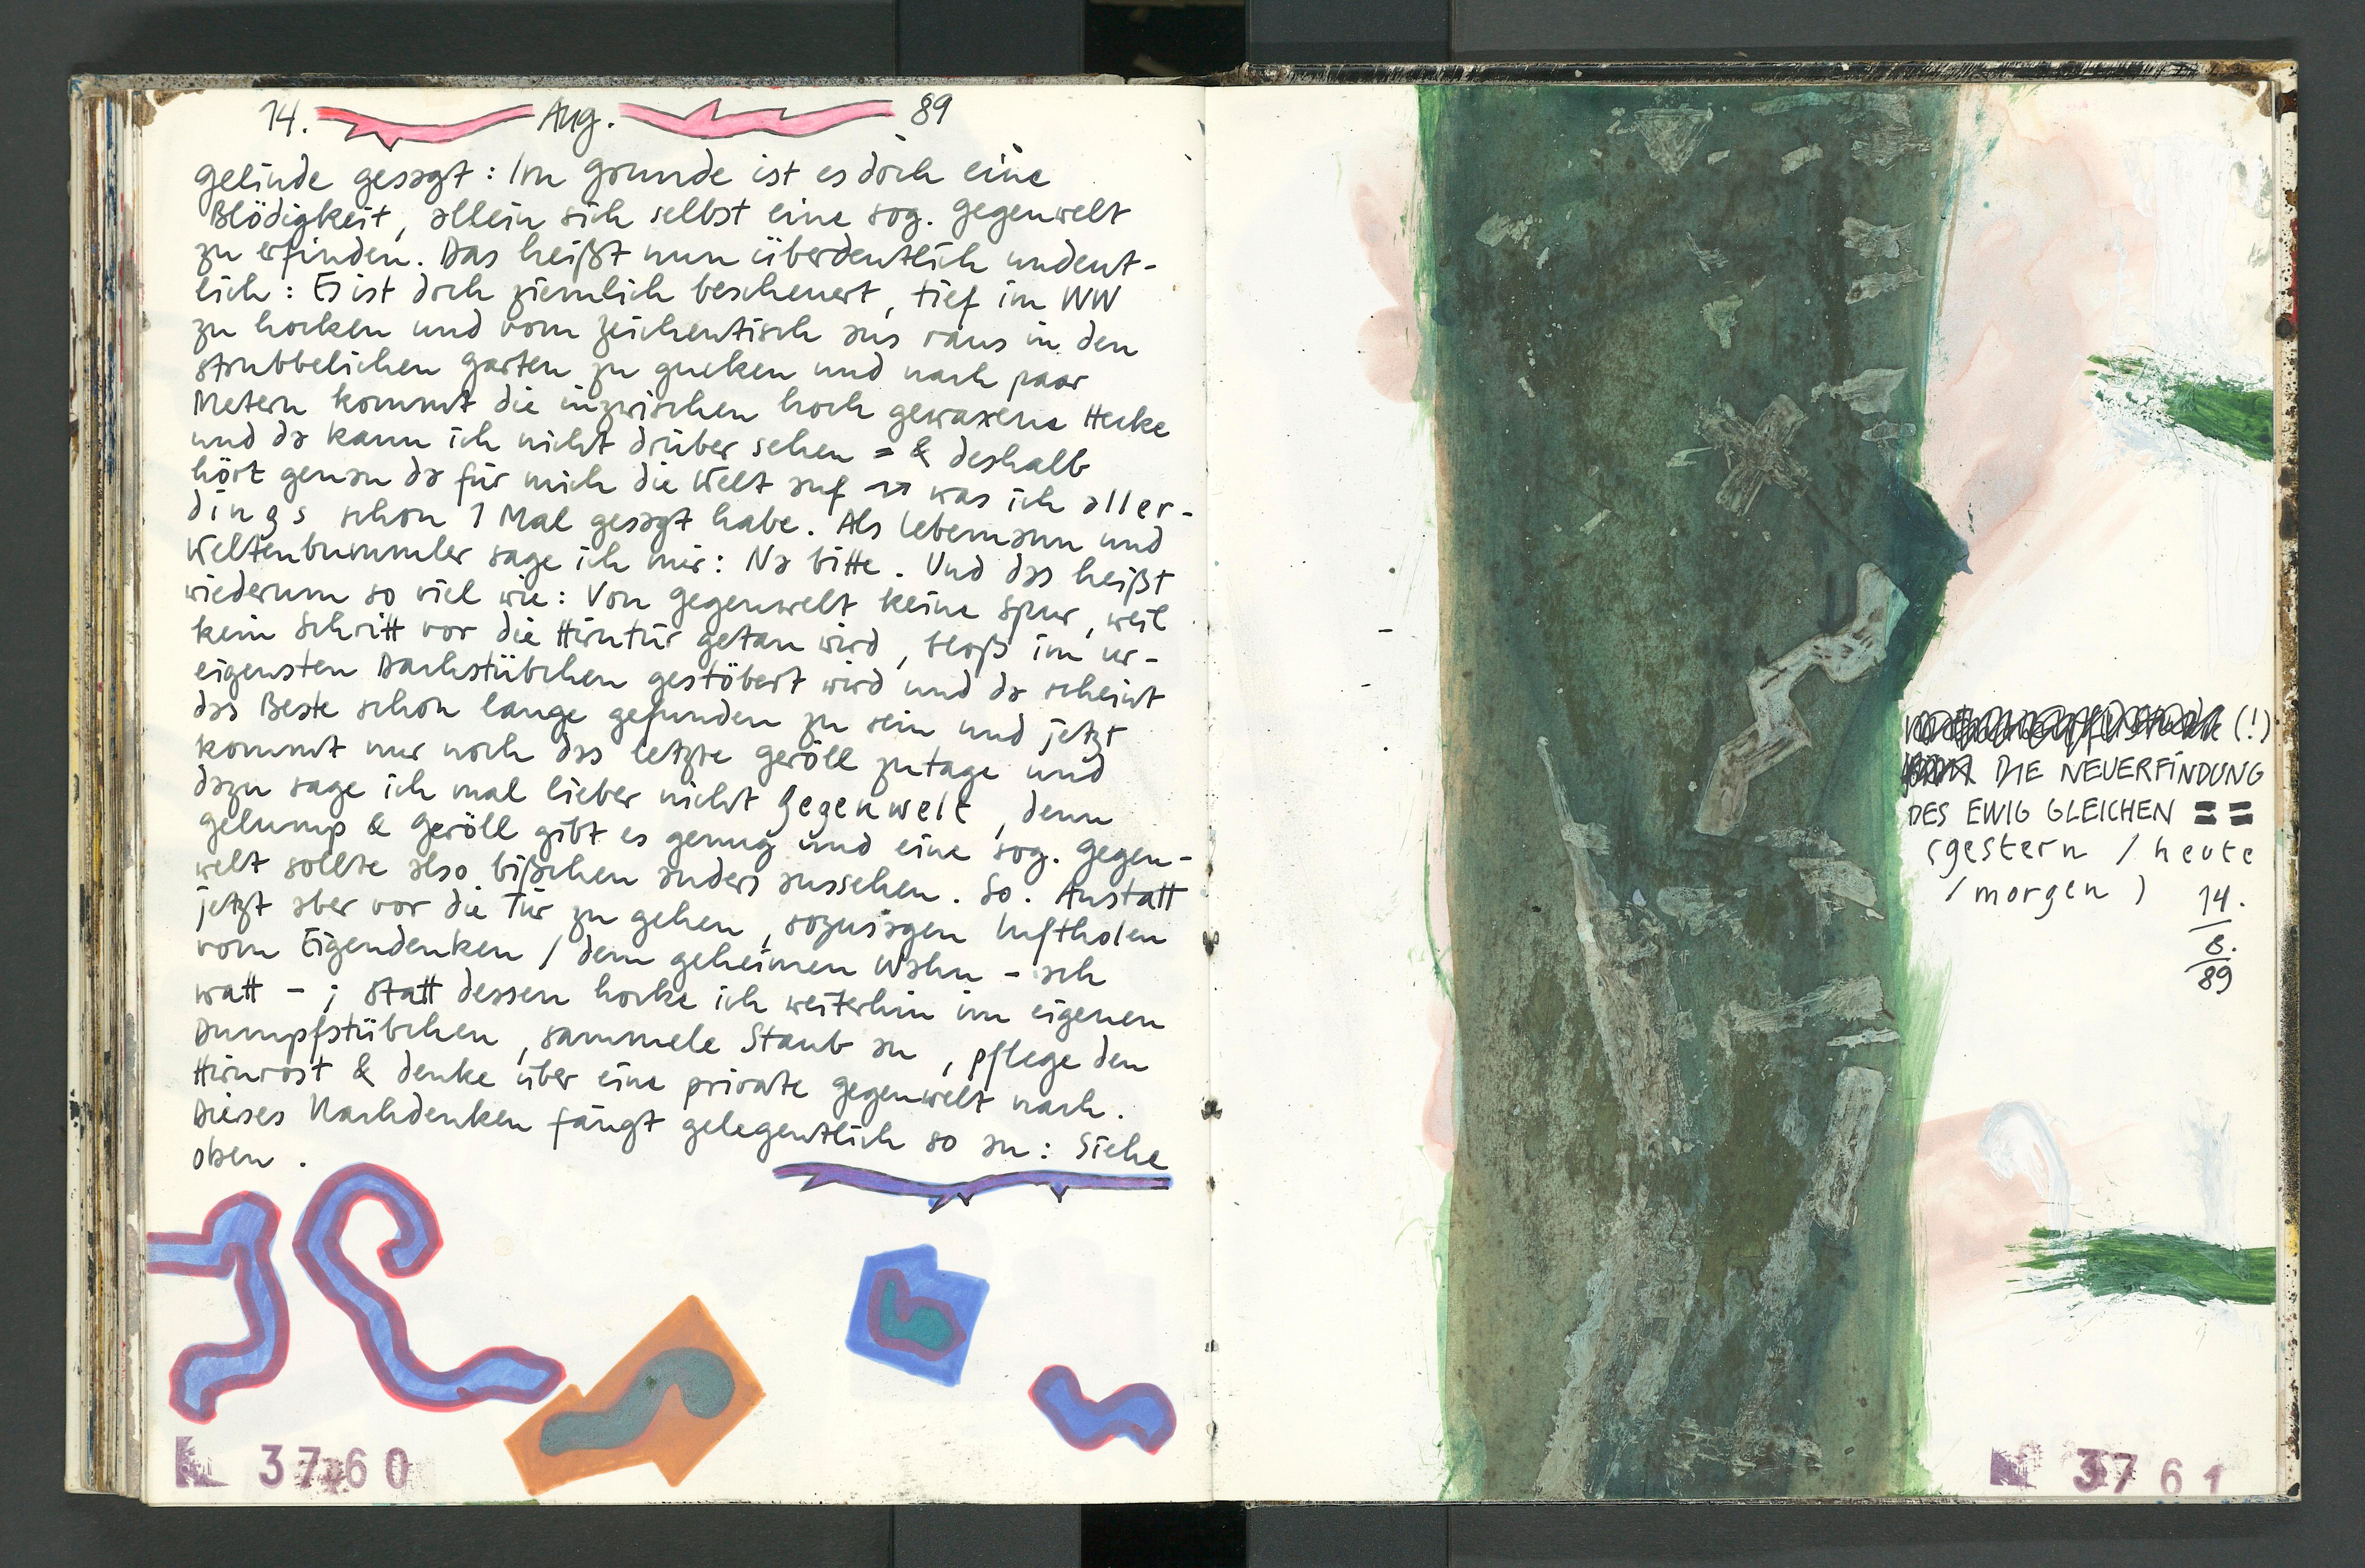 14. Aug. 89
gelinde gesagt: Im Grunde ist es doch eine
Blödigkeit, allein sich selbst eine sog. Gegenwelt
zu erfinden. Das heißt nun überdeutlich undeut-
lich: Es ist doch ziemlich bescheuert, tief im WW
zu hocken und vom Zeichentisch aus raus in den
strubbelichen Garten zu gucken und nach paar
Metern kommt die inzwischen hoch gewaxene Hecke
und da kann ich nicht drüber sehen = & deshalb
hört genau da für mich die Welt auf → was ich aller-
dings schon 1 Mal gesagt habe. Als Lebemann und
Weltenbummler sage ich mir: Na bitte. Und das heißt
wiederum so viel wie: Von Gegenwelt keine Spur, weil
kein Schritt vor die Hirntür getan wird, bloß im ur-
eigensten Dachstübchen gestöbert wird und da scheint
das Beste schon lange gefunden zu sein und jetzt
kommt nur noch das letzte Geröll zutage und
dazu sage ich mal lieber nicht Gegenwelt, denn
Gelump & Geröll gibt es genug und eine sog. Gegen-
welt sollte also bißchen anders aussehen. So. Anstatt
jetzt aber vor die Tür zu gehen, sozusagen Luftholen
vom Eigendenken / dem geheimen Wahn - ach
watt - ; statt dessen hocke ich weiterhin im eigenen
Dumpfstübchen, sammele Staub an, pflege den
Hirnrost & denke über eine private Gegenwelt nach.
Dieses Nachdenken fängt gelegentlich so an: Siehe
oben.
№ 3760
(!)
DIE NEUERFINDUNG
DES EWIG GLEICHEN = =
(gestern / heute
/ morgen)
14.
8.
89
№ 3761